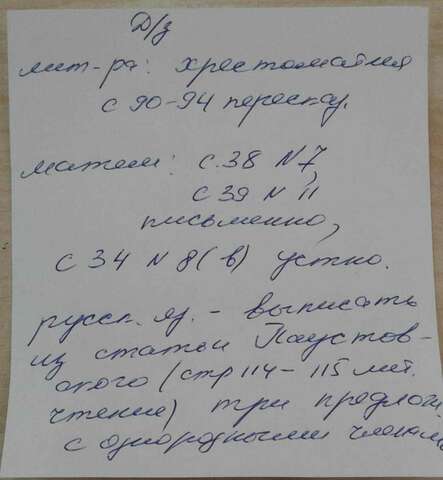 Д/з
лит-ра: хрестоматия
с 90-94 переска.
матем: с.38 N7,
с 39 N 11
письменно,
с 34 N 8(в) устно.
русск. яз. - выписать
из статьи Паустов-
ского (стр 114-115 лит.
чтение) три предлож
с однородными членами